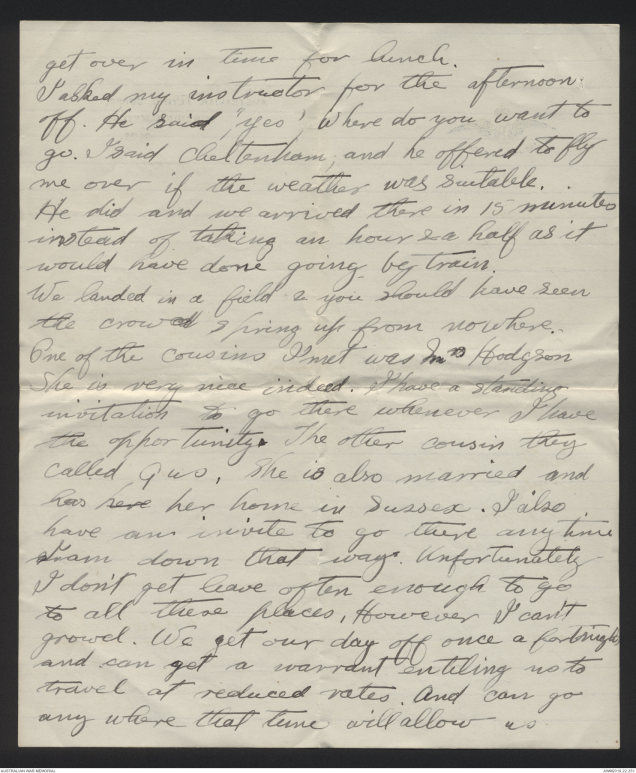 get over in time for lunch.
I asked my instructor for the afternoon
off. He said, 'yes', where do you want to
go. I said Cheltenham, and he offered to fly
me over if the weather was suitable.
He did and we arrived there in 15 minutes
instead of taking an hour & a half as it
would have done going by train.
We landed in a field & you should have seen
the crowd spring up from nowhere.
One of the cousins I met was Mrs Hodgson
She is very nice indeed. I have a standing
invitation to go there whenever I have
the opportunity. The other cousin they
called Gus, she is also married and
has here her home in Sussex. I also
have an invite to go there anytime
I am down that way. Unfortunately
I don't get leave often enough to go
to all these places, However I can't
growl. We get our day off once a fortnight
and can get a warrant entiling us to
travel at reduced rates. And can go
any where that time will allow us
AUSTRALIAN WAR MEMORIAL